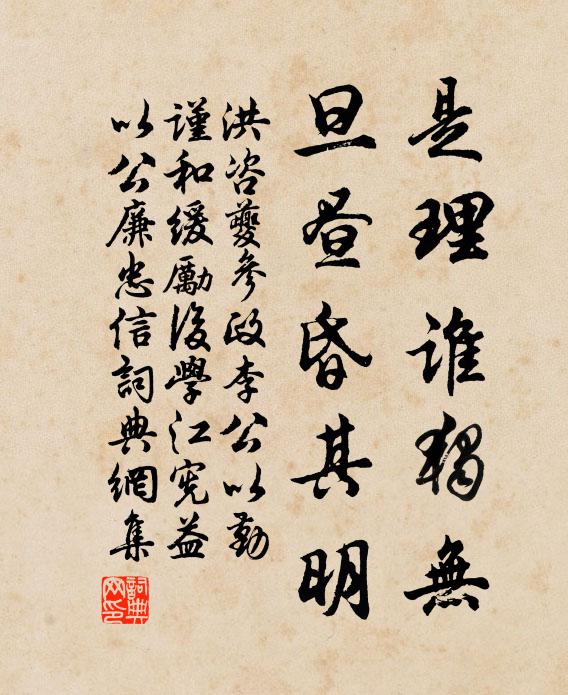 是理誰獨無
旦晝昏其明
洪咨夔參政李公以勤
謹和緩勵後學江宪益
以公廉忠信詞典網集
詞典網印